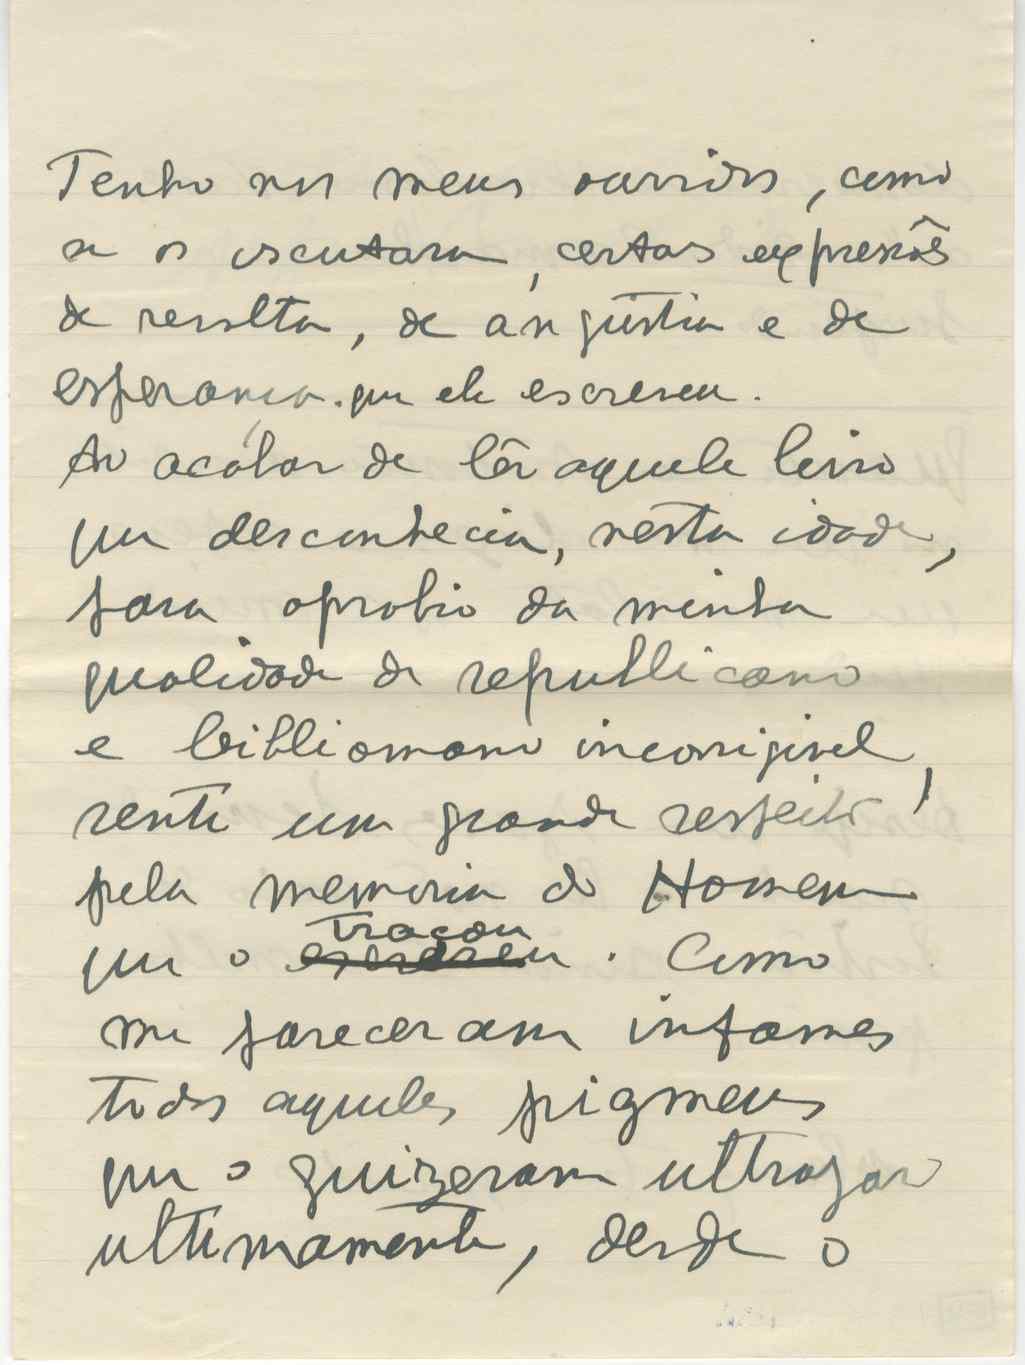 Tenho nos meus ouvidos, como
se os escutara, certas expressões
de revolta, de angústia e de
esperança que ele escreveu.
Ao acabar de lêr aquele livro
que desconhecia, nesta idade,
para oprobio da minha
qualidade de republicano
e bibliomano incorrigivel,
senti um grande respeito
pela memoria do Homem
que o traçou. Como
me pareceram infames
todos aqueles pigmeus
que o quizeram ultrajar
ultimamente, desde o